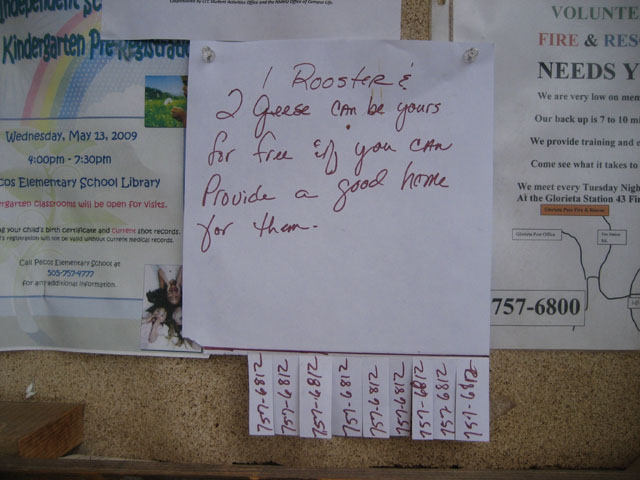 Independent Sc
Kindergarten Pre-Registratio
Wednesday, May 13, 2009
4:00pm - 7:30pm
ecos Elementary School Library
ergarten classrooms will be open for visits.
ng your child's birth certificate and current shot records.
d's registration will not be valid without current medical records.
Call Pecos Elementary School at
505-757-4777
for any additional information.
1 Rooster &
2 Geese can be yours
for free if you can
Provide a good home
for them.
757-6812
757-6812
757-6812
757-6812
757-6812
757-6812
757-6812
757 6812
757-6812
VOLUNTE
FIRE & RES
NEEDS Y
We are very low on mem
Our back up is 7 to 10 mi
We provide training and e
Come see what it takes to
We meet every Tuesday Nigh
At the Glorieta Station 43 Fir
Glorieta Post Office
757-6800